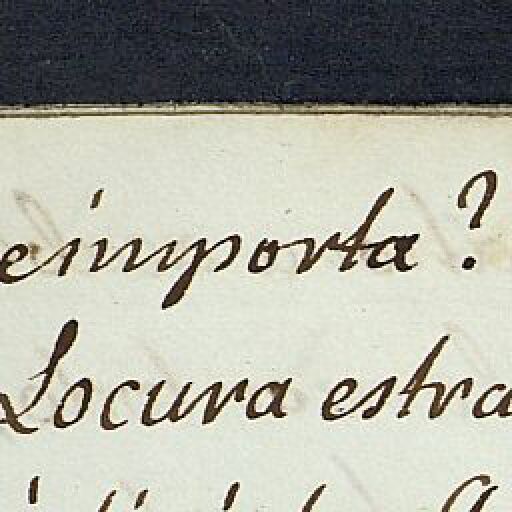 eimporta?
Locura estra